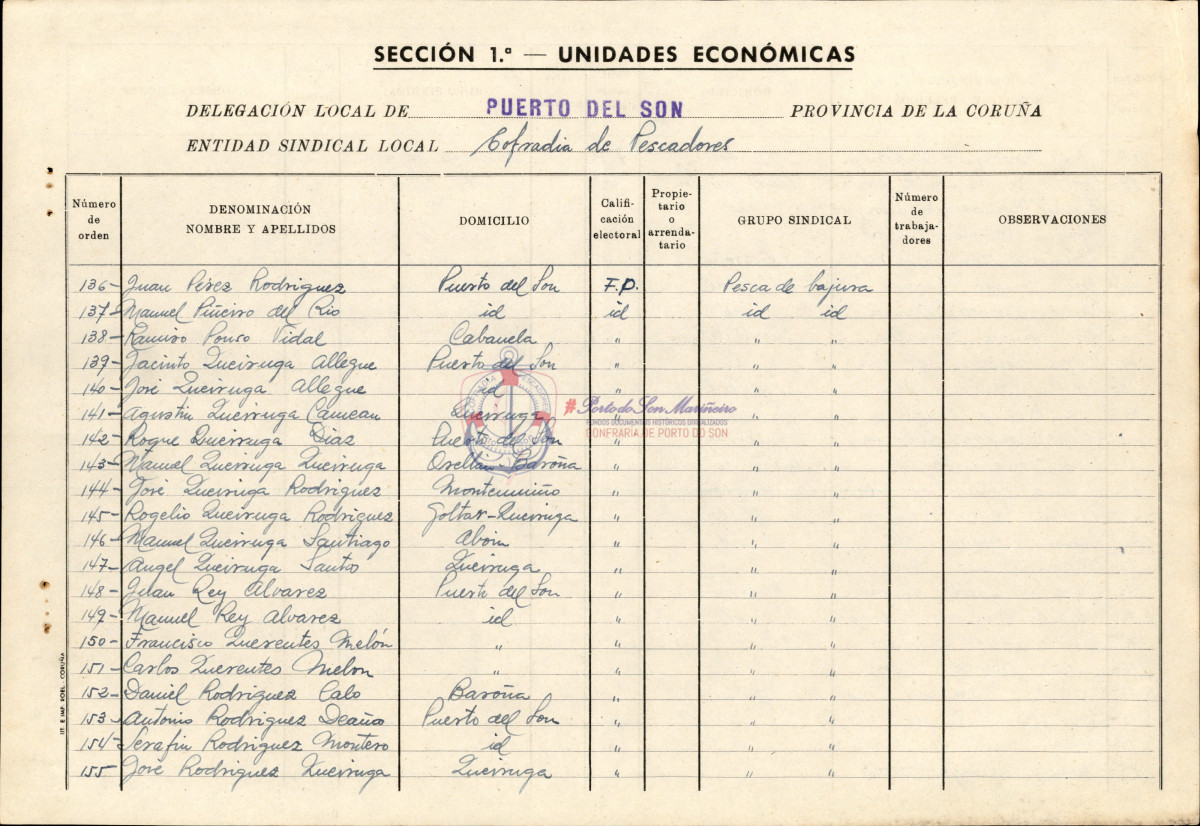 SECCIÓN 1.ª — UNIDADES ECONÓMICAS
DELEGACIÓN LOCAL DE PUERTO DEL SON PROVINCIA DE LA CORUÑA
ENTIDAD SINDICAL LOCAL Cofradia de Pescadores
Número de orden
DENOMINACIÓN NOMBRE Y APELLIDOS
DOMICILIO
Califi-cación electoral
Propie-tario o arrenda-tario
GRUPO SINDICAL
Número de trabaja-dores
OBSERVACIONES
136- Juan Pérez Rodriguez Puerto del Son F.P. Pesca de bajura
137- Manuel Piñeiro del Rio id id id id
138- Ramiro Pouso Vidal " " "
139- Jacinto Queiruga Allegue Puerto del Son " " "
140- José Queiruga Allegue id " " "
141- Agustin Queiruga Queiruga " " "
142- Roque Queiruga Diaz Puerto del Son " " "
143- Manuel Queiruga Queiruga Orellan-Baroña " " "
144- José Queiruga Rodriguez Montemuiño " " "
145- Rogelio Queiruga Rodriguez Goltar-Queiruga " " "
146- Manuel Queiruga Santiago Aboin " " "
147- Angel Queiruga Santos Queiruga " " "
148- Juan Rey Alvarez Puerto del Son " " "
149- Manuel Rey Alvarez id " " "
150- Francisco Querentes Melón " " " "
151- Carlos Querentes Melon " " " "
152- Daniel Rodriguez Calo Baroña " " "
153- Antonio Rodriguez Deaño Puerto del Son " " "
154- Serafin Rodriguez Montero id " " "
155- José Rodriguez Queiruga Queiruga " " "
#Porto do Son Mariñeiro
FONDOS DOCUMENTAIS HISTÓRICOS DIXITALIZADOS
CONFRARÍA DE PORTO DO SON
LIT. E IMP. ROEL - CORUÑA